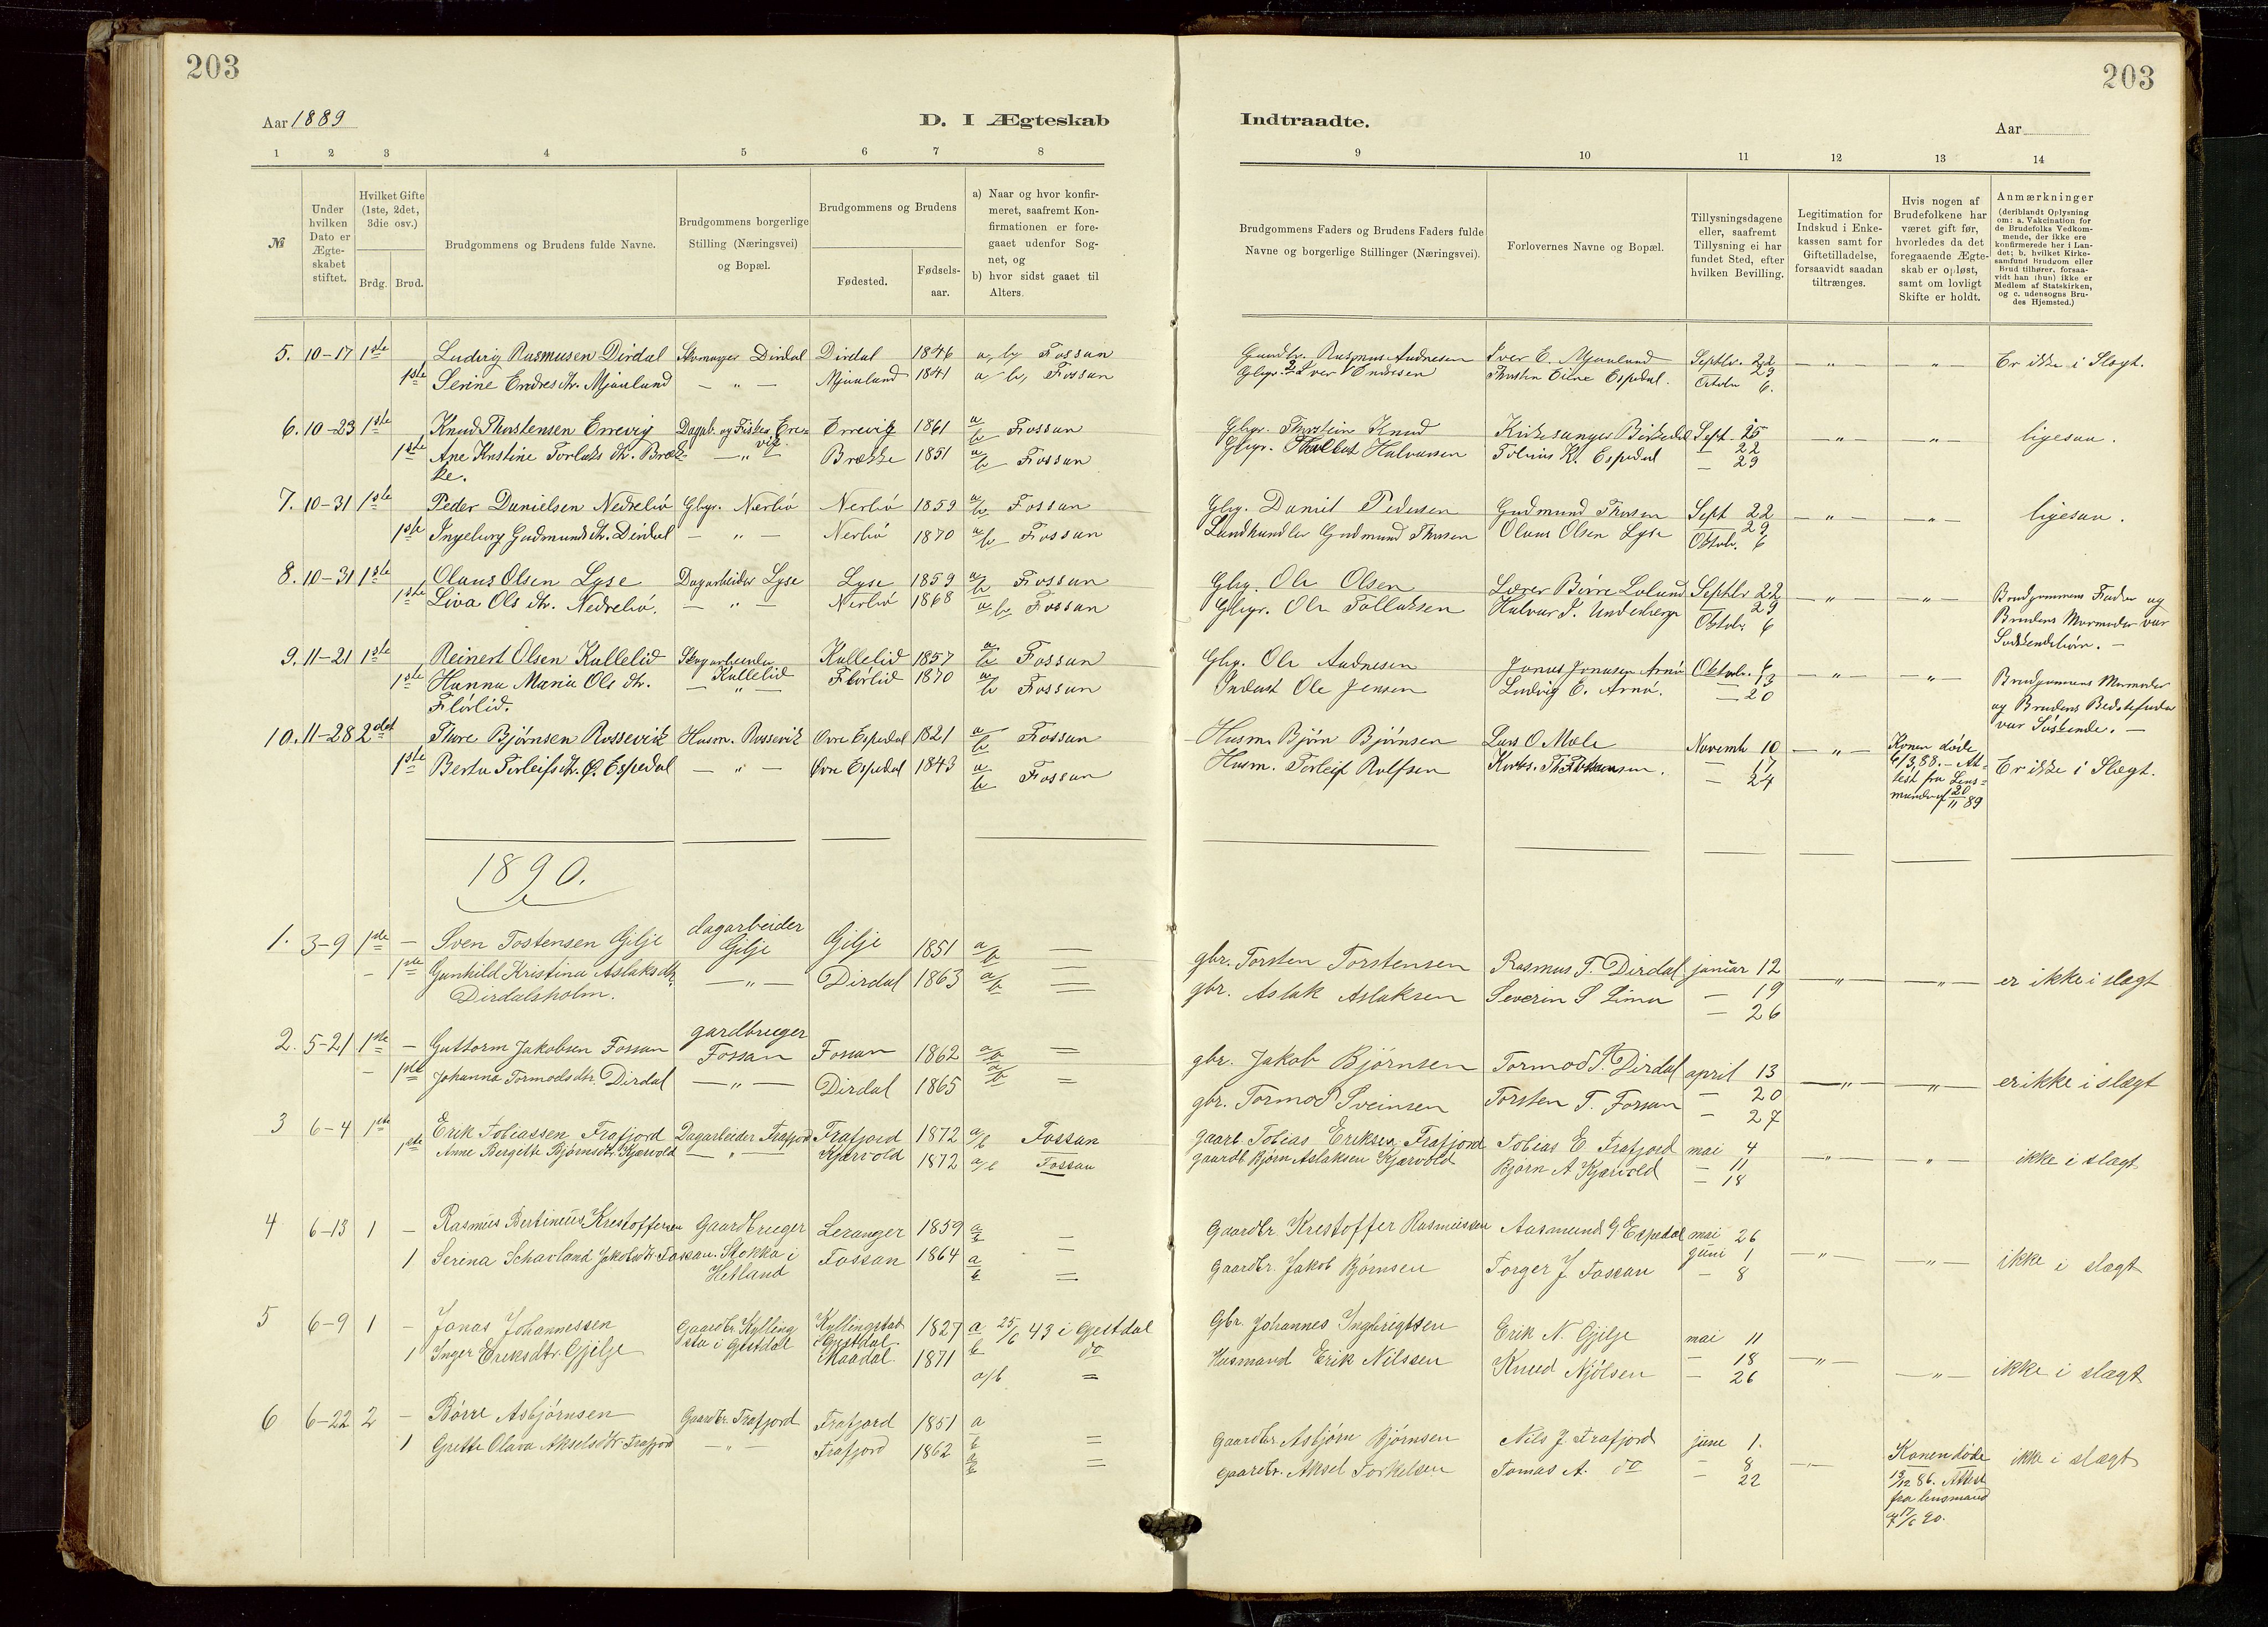 203
203
Aar 1889
D. I Ægteskab
Indtraadte.
Aar
1 2 3 4 5 6 7 8
9 10 11 12 13 14
№
Under hvilken Dato er Ægteskabet stiftet.
Hvilket Gifte (1ste, 2det, 3die osv.)
Brdg. Brud.
Brudgommens og Brudens fulde Navne.
Brudgommens borgerlige Stilling (Næringsvei) og Bopæl.
Brudgommens og Brudens
Fødested.
Fødselsaar.
a) Naar og hvor konfirmeret, saafremt Konfirmationen er foregaaet udenfor Sognet, og
b) hvor sidst gaaet til Alters.
Brudgommens Faders og Brudens Faders fulde Navne og borgerlige Stillinger (Næringsvei).
Forlovernes Navne og Bopæl.
Tillysningsdagene eller, saafremt Tillysning ei har fundet Sted, efter hvilken Bevilling.
Legitimation for Indskud i Enkekassen samt for Giftetilladelse, forsaavidt saadan tiltrænges.
Hvis nogen af Brudefolkene har været gift før, hvorledes da det foregaaende Ægteskab er opløst, samt om lovligt Skifte er holdt.
Anmærkninger
(deriblandt Oplysning om: a. Vakcination for de Brudefolks Vedkommende, der ikke ere konfirmerede her i Landet; b. hvilket Kirkesamfund Brudgom eller Brud tilhører, forsaavidt han (hun) ikke er Medlem af Statskirken, og c. udensogns Brudes Hjemsted.)
5. 10-17 1ste Ludvig Rasmusen Dirdal Skomager Dirdal Dirdal 1846 a, b, Fossan Gaardbr. Rasmus Audnesen Iver E. Mjaaland Septbr. 22 — " — — " — Er ikke i Slægt.
1ste Serine Endresdtr. Mjaaland — " — Mjaaland 1841 a, b, Fossan Endresen Espedal. 29
Octobr 6.
6. 10-23 1ste Knud Thorstensen Errevig Dagarb. og Fisker Errevig Errevig 1861 a/b Fossan Gbgr. Thorsteine Knud Kirkesanger Birkedal Sept. 15 — " — — " — ligesaa.
1ste Ane Kristine Torlaks dtr. Brække. — " — Brække 1851 a/b Fossan Gbgr. Halvorsen Tobias K. Espedal — 22
— 29
7. 10-31 1ste Peder Danielsen Nedrebø Gbgr. Nerbø Nerbø 1859 a/b Fossan Gbg. Daniel Pedersen Gudmund Thorsen Sept 22 — " — — " — ligesaa.
1ste Ingeborg Gudmunds dtr. Dirdal — " — Nerbø 1870 a/b Fossan Landhandler Gudmund Thorsen Olaus Olsen Lyse — 29
Oktob. 6
8. 10-31 1ste Olaus Olsen Lyse Dagarbeider Lyse Lyse 1859 a/b Fossan Gbg. Ole Olsen Lærer Børre Lølund Septbr 22 — " — — " — Brudgommens Fader og
1ste Liva Ols dtr. Nedrebø. — " — Nerbø 1868 a b, Fossan Gbgr. Ole Tollaksen Halvar S. Underberge 29 Brudens Mormoder var
Oktob. 6 Sødskendebørn. —
9. 11-21 1ste Reinert Olsen Kallelid Dagarbeider Kallelid 1857 a/b Fossan Gbg. Ole Audnesen Jonas Jonasen Arnø Oktobr. 6 — " — — " — Brudgommens Mormoder
1ste Hanna Maria Ols dtr. Flørlid. Kallelid — " — Flørlid 1870 a/b Fossan Inderst Ole Jensen Ludvig E. Arnø. 13
— 20 og Brudens Bedstefader
var Søskende. —
10. 11-28 2det Thore Bjørnsen Rossevik Husm. Rossevik Øvre Espedal 1821 a/b Fossan Husm. Bjørn Bjørnsen Lars O Mæle Novemb 10 — " — Konen døde Er ikke i Slægt.
1ste Berta Torleifs dtr. Ø. Espedal — " — Øvre Espedal 1843 a/b Fossan Husm. Torleif Rolfsen — 17 6/3, 88. — At-
— 24 test fra Lens-
mand af 20/11 89
1890.
1. 3-9 1ste — Sven Tostensen Gilje dagarbeider Gilje Gilje 1851 a/b — gbr. Torsten Torstensen Rasmus T. Dirdal januar 12 — " — — " — er ikke i slægt
— 1ste Gunhild Kristina Aslaksdtr. Dirdalsholm. — " — Dirdal 1863 a/b — gbr. Aslak Aslaksen Severin S Lima — 19
— 26
2. 5-21 1ste — Guttorm Jakobsen Fossan gardbruger Fossan Fossan 1862 a/b — gbr. Jakob Bjørnsen Tormod P. Dirdal april 13 — " — — " — er ikke i slægt
— 1ste Johanna Tormodsdtr. Dirdal — " — Dirdal 1865 a/b — gbr. Tormod Sveinsen Torsten T. Fossan — 20
— 27
3 6-4 1ste Erik Tobiassen Frafjord Dagarbeider Frafjord Frafjord 1872 a/b Fossan gaardb. Tobias Eriksen Frafjord Tobias E Frafjord mai 4 — " — " ikke i slægt
1ste Anne Bergette Bjørnsdtr. Kjærvold — " — Kjærvold 1872 a/b Fossan gaardb. Bjørn Aslaksen Kjærvold Bjørn A Kjærvold — 11
— 18
4 6-13 1 — Rasmus Bertinius Kristoffersen Gaardbruger Leranger 1859 a/b — Gaardbr. Kristoffer Rasmussen Aasmund G Espedal mai 26 — " — — " — ikke i slægt
1 Serina Schavland Jakobsdtr Fossan. Stokka i Hetland Fossan 1864 a/b — Gaardbr. Jakob Bjørnsen Torger J Fossan juni 1
— 8
5 6-9 1 — Jonas Johannessen Gaardbr. Kyllingsta i Gjestdal Kyllingstad i Gjestdal 1827 a 25/6 43 i Gjestdal Gbr. Johannes Ingbrigtsen Erik N. Gjilje mai 11 — " — — " — ikke i slægt
1 Inger Eriksdtr. Gjilje Maadal. 1871 b do Husmand Erik Nilssen Knud Njølsen — 18
a/b — — 26
6 6-22 2 — Børre Asbjørnsen Gaardbr. Frafjord Frafjord 1851 a/b — Gaardbr Asbjørn Bjørnsen Nils J. Frafjord june 1. — " — Konen døde ikke i slægt
1 Grette Olava Akselsdtr Frafjord — " — Frafjord 1862 a/b — gaardbr. Aksel Torkelsen Tomas A. do — 8 13/12 86. Attest
22 fra lensmand
af 17/6 90.